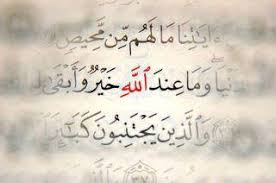 ءَايَٰتِنَا مَا لَهُم مِّن مَّحِيصٍ
نْيَا وَمَا عِندَ ٱللَّهِ خَيْرٌ وَأَبْقَىٰ
وَٱلَّذِينَ يَجْتَنِبُونَ كَبَٰٓئِرَ
٣٧